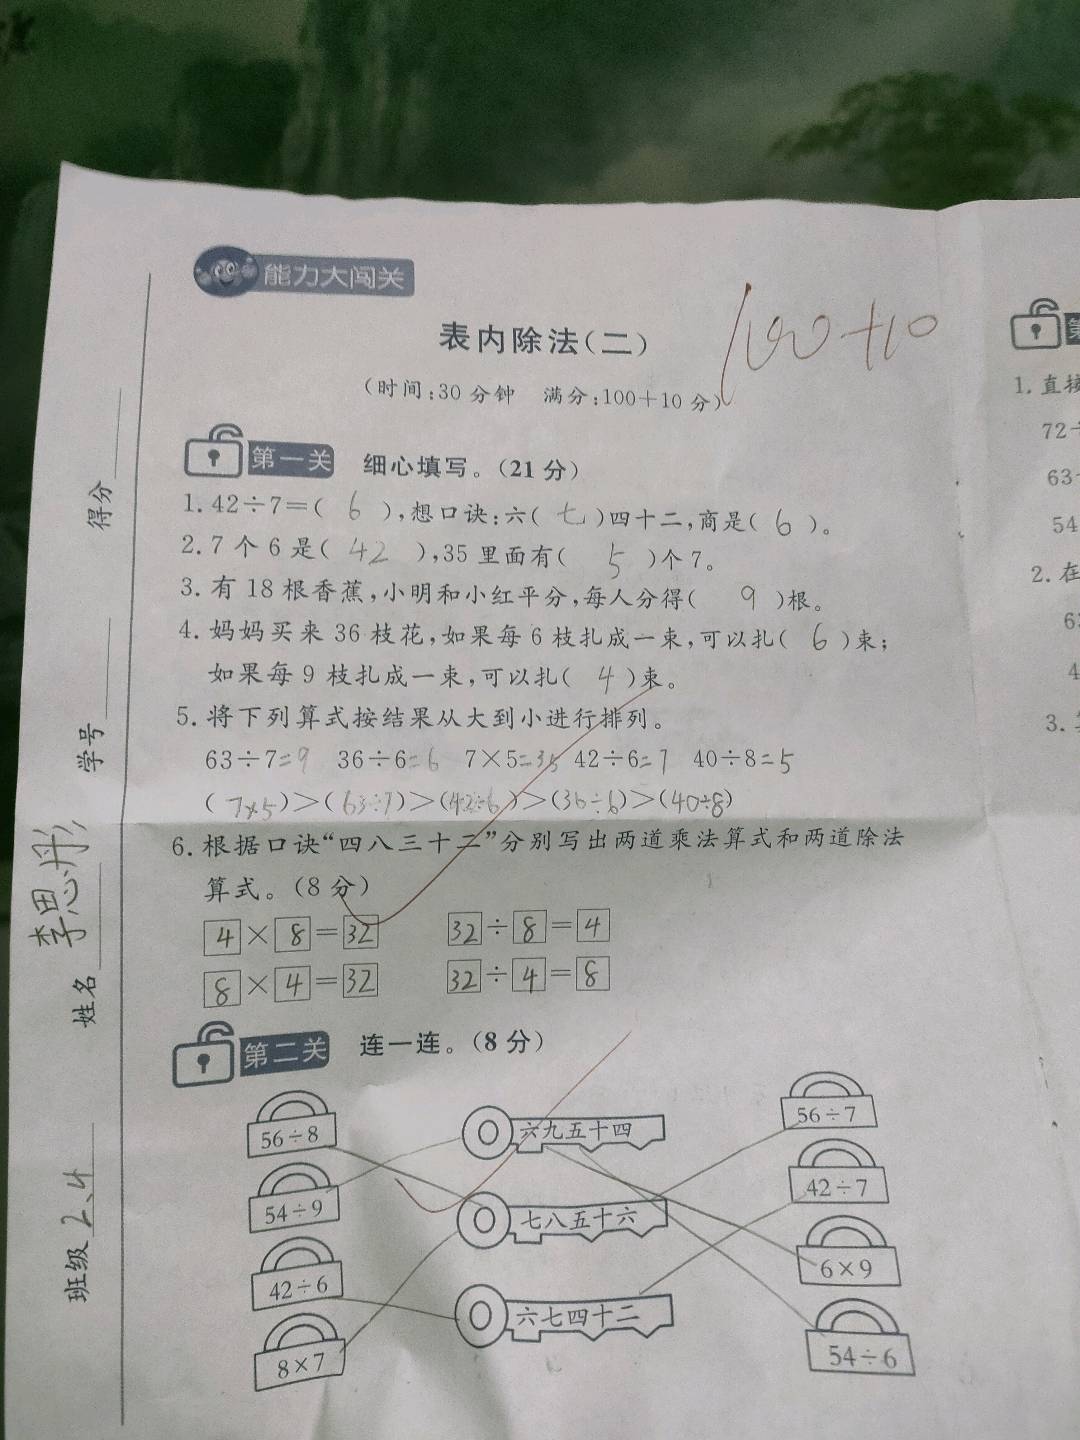 能力大闯关
表内除法(二)
100+10
(时间:30分钟 满分:100+10分)
第一关 细心填写。(21分)
1. 42÷7=( 6 ),想口诀:六( 七 )四十二,商是( 6 )。
2. 7个6是( 42 ),35里面有( 5 )个7。
3. 有18根香蕉,小明和小红平分,每人分得( 9 )根。
4. 妈妈买来36枝花,如果每6枝扎成一束,可以扎( 6 )束;
如果每9枝扎成一束,可以扎( 4 )束。
5. 将下列算式按结果从大到小进行排列。
63÷7=9 36÷6=6 7×5=35 42÷6=7 40÷8=5
(7×5)>(63÷7)>(42÷6)>(36÷6)>(40÷8)
6. 根据口诀“四八三十二”分别写出两道乘法算式和两道除法
算式。(8分)
4×8=32 32÷8=4
8×4=32 32÷4=8
第二关 连一连。(8分)
56÷8 六九五十四 56÷7
54÷9 七八五十六 42÷7
42÷6 六七四十二 6×9
8×7 54÷6
班级 2.4 姓名 李思彤 学号 得分
1. 直
72÷
63÷
54
2. 在
63
4
3.